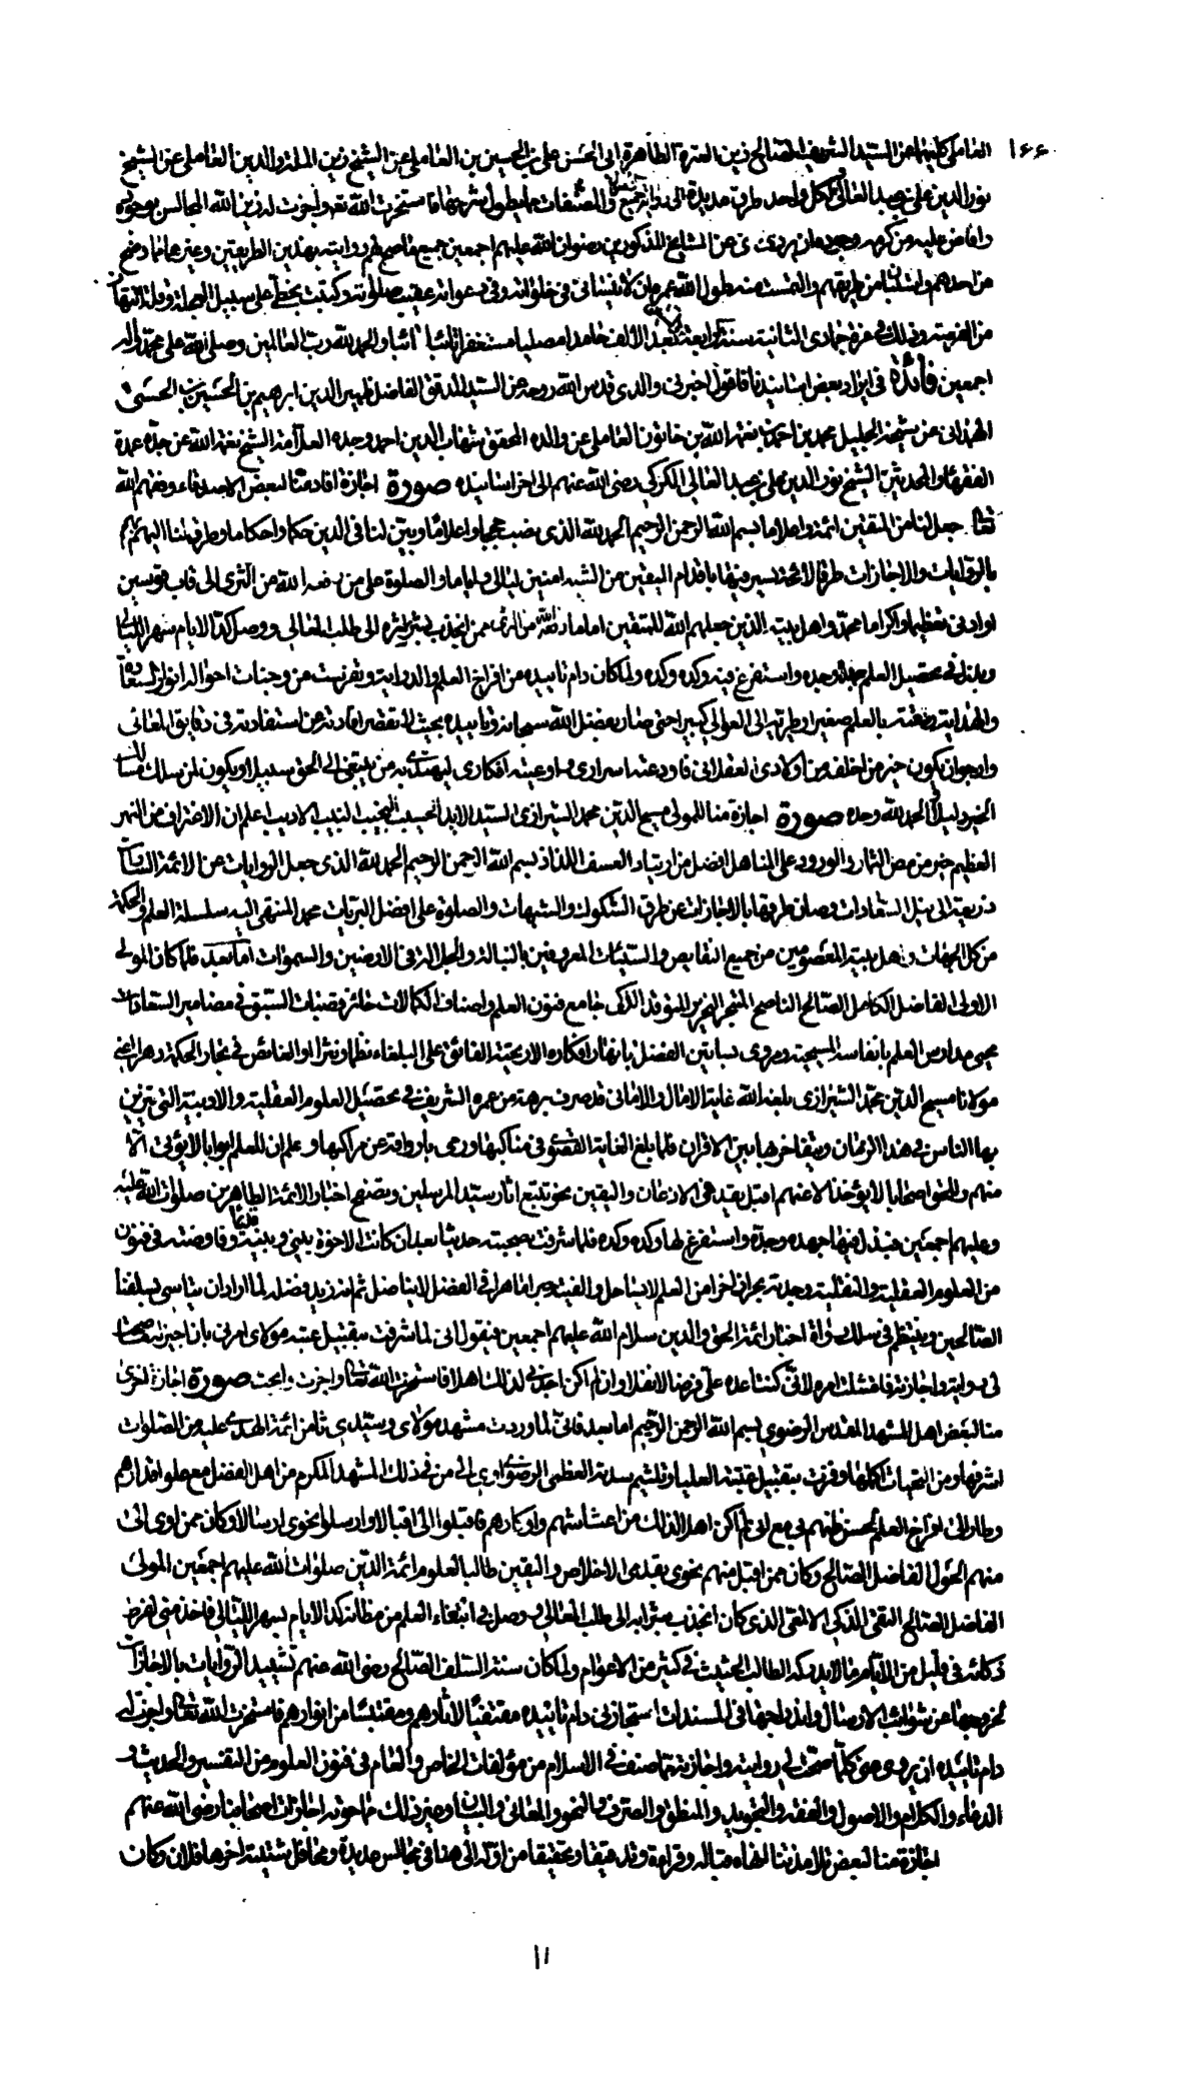 ١٦٦
العاملي كليهما عن السيد الشريف الصالح زين العترة الطاهرة ابى الحسن على بن الحسين بن العاملى عن الشيخ زين الملة والدين العاملى عن الشيخ
نور الدين على بن عبد العالى ولكل واحد طرق عديدة الى جميع المصنفات مما يطول شرحها فاستخرت الله تعالى واجزت له زين الله المجالس بوجوده
وافاض عليه من كرمه وجوده ان يروى عنى عن المشايخ المذكورين رضوان الله عليهم اجمعين جميع ما صح لهم روايته بهذين الطريقين وغيرهما
من احدهم والتمست منه طول الله عمره ان لا ينسانى فى خلواته وفى دعواته عقيب صلواته وكتبت بخطى على سبيل العجلة
من الهجرية وذلك فى غرة جمادى الثانية سنة رابعة بعد الالف حامدا مصليا مستغفرا تائبا والحمد لله رب العالمين وصلى الله على محمد وآله
اجمعين فائدة فى ايراد بعض اسانيدنا فاقول اخبرنى والدى قدس الله روحه عن السيد المدقق الفاضل ظهير الدين ابراهيم بن الحسين الحسنى
الهمدانى عن شيخه الجليل محمد بن احمد بن نعمة الله بن خاتون العاملى عن والده المحقق شهاب الدين احمد وجده العلامة الشيخ نعمة الله عن جده عمدة
الفقهاء والمحدثين الشيخ نور الدين على بن عبد العالى الكركى رضى الله عنهم الى اخر اسانيده صورة اجازة افادها لبعض الاصدقاء وفقهم الله
تعالى جعلنا من المتقين ائمة واعلاما بسم الله الرحمن الرحيم الحمد لله الذى نصب حججا واعلاما وبين لنا فى الدين حكما واحكاما وطرق لنا اليهم
بالروايات والاجازات طرقا لائحة نسير فيها باقدام اليقين من الشبه امنين ليالى واياما والصلوة على من رفعه الله من الثرى الى قاب قوسين
او ادنى تعظيما واكراما محمد واهل بيته الذين جعلهم الله للمتقين اماما ممن انجذب بشراشره الى طلب المعالى ووصل كد الايام بسهر الليالى
وبذل فى تحصيل العلم جهده وجده واستفرغ فيه وكده وكده ولما كان دام تاييده من افراخ العلم والرواية وتفرست من وجنات احواله انوار السعادة
والهداية بالعلم صغيرا وطرت به الى العوالى كبيرا حتى صار بفضل الله سبحانه وتاييده بحيث لا تقصر افادته عن استفادته فى دقايق المعانى
وارجو ان يكون خير من اخلفه من اولادى العقلانى فاودعته اسرارى واوعيته افكارى ليهتدى به من يبتغى الى الحق سبيلا ويكون لمن سلك مسالك
الخير دليلا والحمد لله وحده صورة اجازة منا للمولى مسيح الدين محمد الشيرازى لسيد الايد الحسيب النجيب اللبيب الاديب اعلم ان الاغتراف من النهر
العظيم خير من مص الثمار والورود على المناهل افضل من ارتياد العسف بسم الله الرحمن الرحيم الحمد لله الذى جعل الروايات عن الائمة السادات
ذريعة الى نيل السعادات وصان طرقها بالاجازات عن طرق الشكوك والشبهات والصلوة على افضل البريات محمد المنتهى اليه سلسلة العلم والحكمة
من كل الجهات واهل بيته المعصومين من جميع النقايص والسيئات المعروفين بالنبالة والجلالة فى الارضين والسموات اما بعد فلما كان المولى
الاولى الفاضل الكامل الصالح الناصح المتبحر النحرير الذكى جامع فنون العلم واصناف الكمالات حائز قصبات السبق فى مضامير السعادات
محيى مدارس العلم بانفاسه المسيحية ومروى بساتين الفضل بانهار افكاره الاريحية الفائق على البلغاء نظما ونثرا والغائص فى بحار الحكمة دهرا اعنى
مولانا مسيح الدين محمد الشيرازى بلغه الله غاية الامال والامانى قد صرف برهة من عمره الشريف فى تحصيل العلوم العقلية والادبية التى يتزين
بها الناس فى هذا الزمان ويتفاخر بها بين الاقران فلما بلغ الغاية القصوى فى مناكبها ورمى بارواقه عن مراكبها وعلم ان للعلم ابوابا لا يؤتى الا
منهم وللحق اصحابا لا يؤخذ الا عنهم اقبل بقدمى الاذعان واليقين نحو تتبع اثار سيد المرسلين وتصفح اخبار الائمة الطاهرين صلوات الله عليه
وعليهم اجمعين فبذل فيها جهده وجده واستفرغ لها وكده وكده فلما شرفت بصحبته حديثا بعد ان كانت الاخوة بينى وبينه قديما وفاوضته فى فنون
من العلوم العقلية والنقلية وجدته بحرا زاخرا من العلم لا يساحل والفيته حبرا ماهرا فى الفضل لا يناضل ثم انه زيد فضله لما اراد ان يتاسى بسلفنا
الصالحين وينتظم فى سلك رواة اخبار ائمة الحق والدين سلام الله عليهم اجمعين فيقول انى لما شرفت بتقبيل عتبة مولاى امرنى بان اجيز له ما صحت
لى روايته واجازته فامتثلت امره لانى كنت اعده على فرضا لا نفلا وان لم اكن اجدنى لذلك اهلا فاستخرت الله تعالى واجزت وابحت صورة اجازة اخرى
منا لبعض اهل المشهد المقدس الرضوى بسم الله الرحمن الرحيم اما بعد فانى لما وردت مشهد مولاى وسيدى ثامن ائمة الهدى عليه من الصلوات
اشرفها ومن التحيات اكملها وفزت بتقبيل عتبته العليا وتلثيم سدته العظمى الرضوى اوى الى من فى ذلك المشهد المكرم من اهل الفضل مع علو اقدارهم
وطار الى افراخ العلم لحسن ظنهم بى مع انى لم اكن اهلا لذلك من اعشاشهم واوكارهم فاقبلوا الى اقبالا وارسلوا نحوى ارسالا وكان ممن اوى الى
منهم المولى الفاضل الصالح وكان ممن اقبل منهم نحوى بقدمى الاخلاص واليقين طالبا لعلوم ائمة الدين صلوات الله عليهم اجمعين المولى
الفاضل الصالح التقى الذكى الالمعى الذى كان انجذب بشراشره الى طلب المعالى ووصل فى ابتغاء العلم من مظانه كد الايام بسهر الليالى فاخذ منى لفرط
ذكائه فى قليل من الايام ما لا يدركه الطالب الحثيث فى كثير من الاعوام ولما كان سنة السلف الصالح رضى الله عنهم تشييد الروايات بالاجازات
لخروجها عن شوائب الارسال واندراجها فى المسندات استجازنى دام تاييده مقتفيا لاثارهم ومقتبسا من انوارهم فاستخرت الله تعالى واجزت له
دام تاييده ان يروى عنى كلما صحت لى روايته واجازته مما صنف فى الاسلام من مؤلفات الخاص والعام فى فنون العلوم من التفسير والحديث و
الدعاء والكلام والاصول والفقه والتجويد والمنطق والصرف والنحو والمعانى والبيان وغير ذلك مما حوته اجازات اصحابنا رضى الله عنهم
اجازة منا لبعض تلامذتنا انهاه مقابلة وقراءة وتدقيقا وتحقيقا من اوله الى هنا فى مجالس عديدة ومحافل شتيتة اخرها فلان وكان
١١